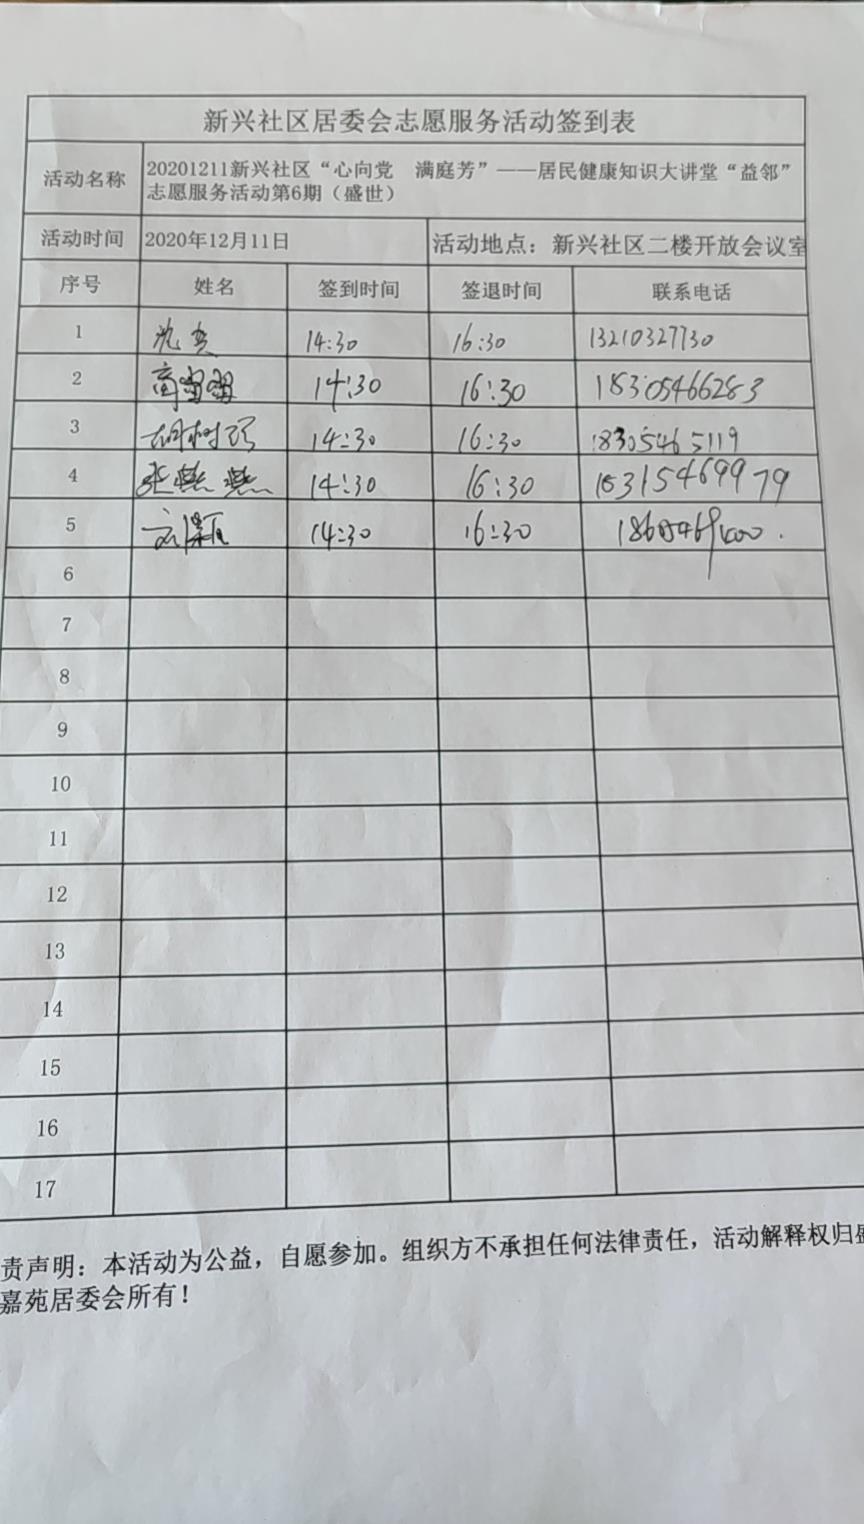 新兴社区居委会志愿服务活动签到表
活动名称 20201211新兴社区“心向党 满庭芳”——居民健康知识大讲堂“益邻”
志愿服务活动第6期（盛世）
活动时间 2020年12月11日 活动地点：新兴社区二楼开放会议室
序号 姓名 签到时间 签退时间 联系电话
1 14:30 16:30 13210327730
2 14:30 16:30 18305466283
3 胡树 14:30 16:30 18305465119
4 张燕燕 14:30 16:30 15315469979
5 14:30 16:30
6
7
8
9
10
11
12
13
14
15
16
17
责声明：本活动为公益，自愿参加。组织方不承担任何法律责任，活动解释权归盛
嘉苑居委会所有！